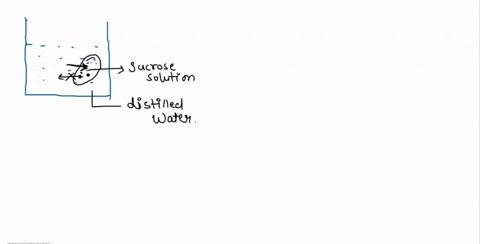 Sucrose
solution
distilled
water.